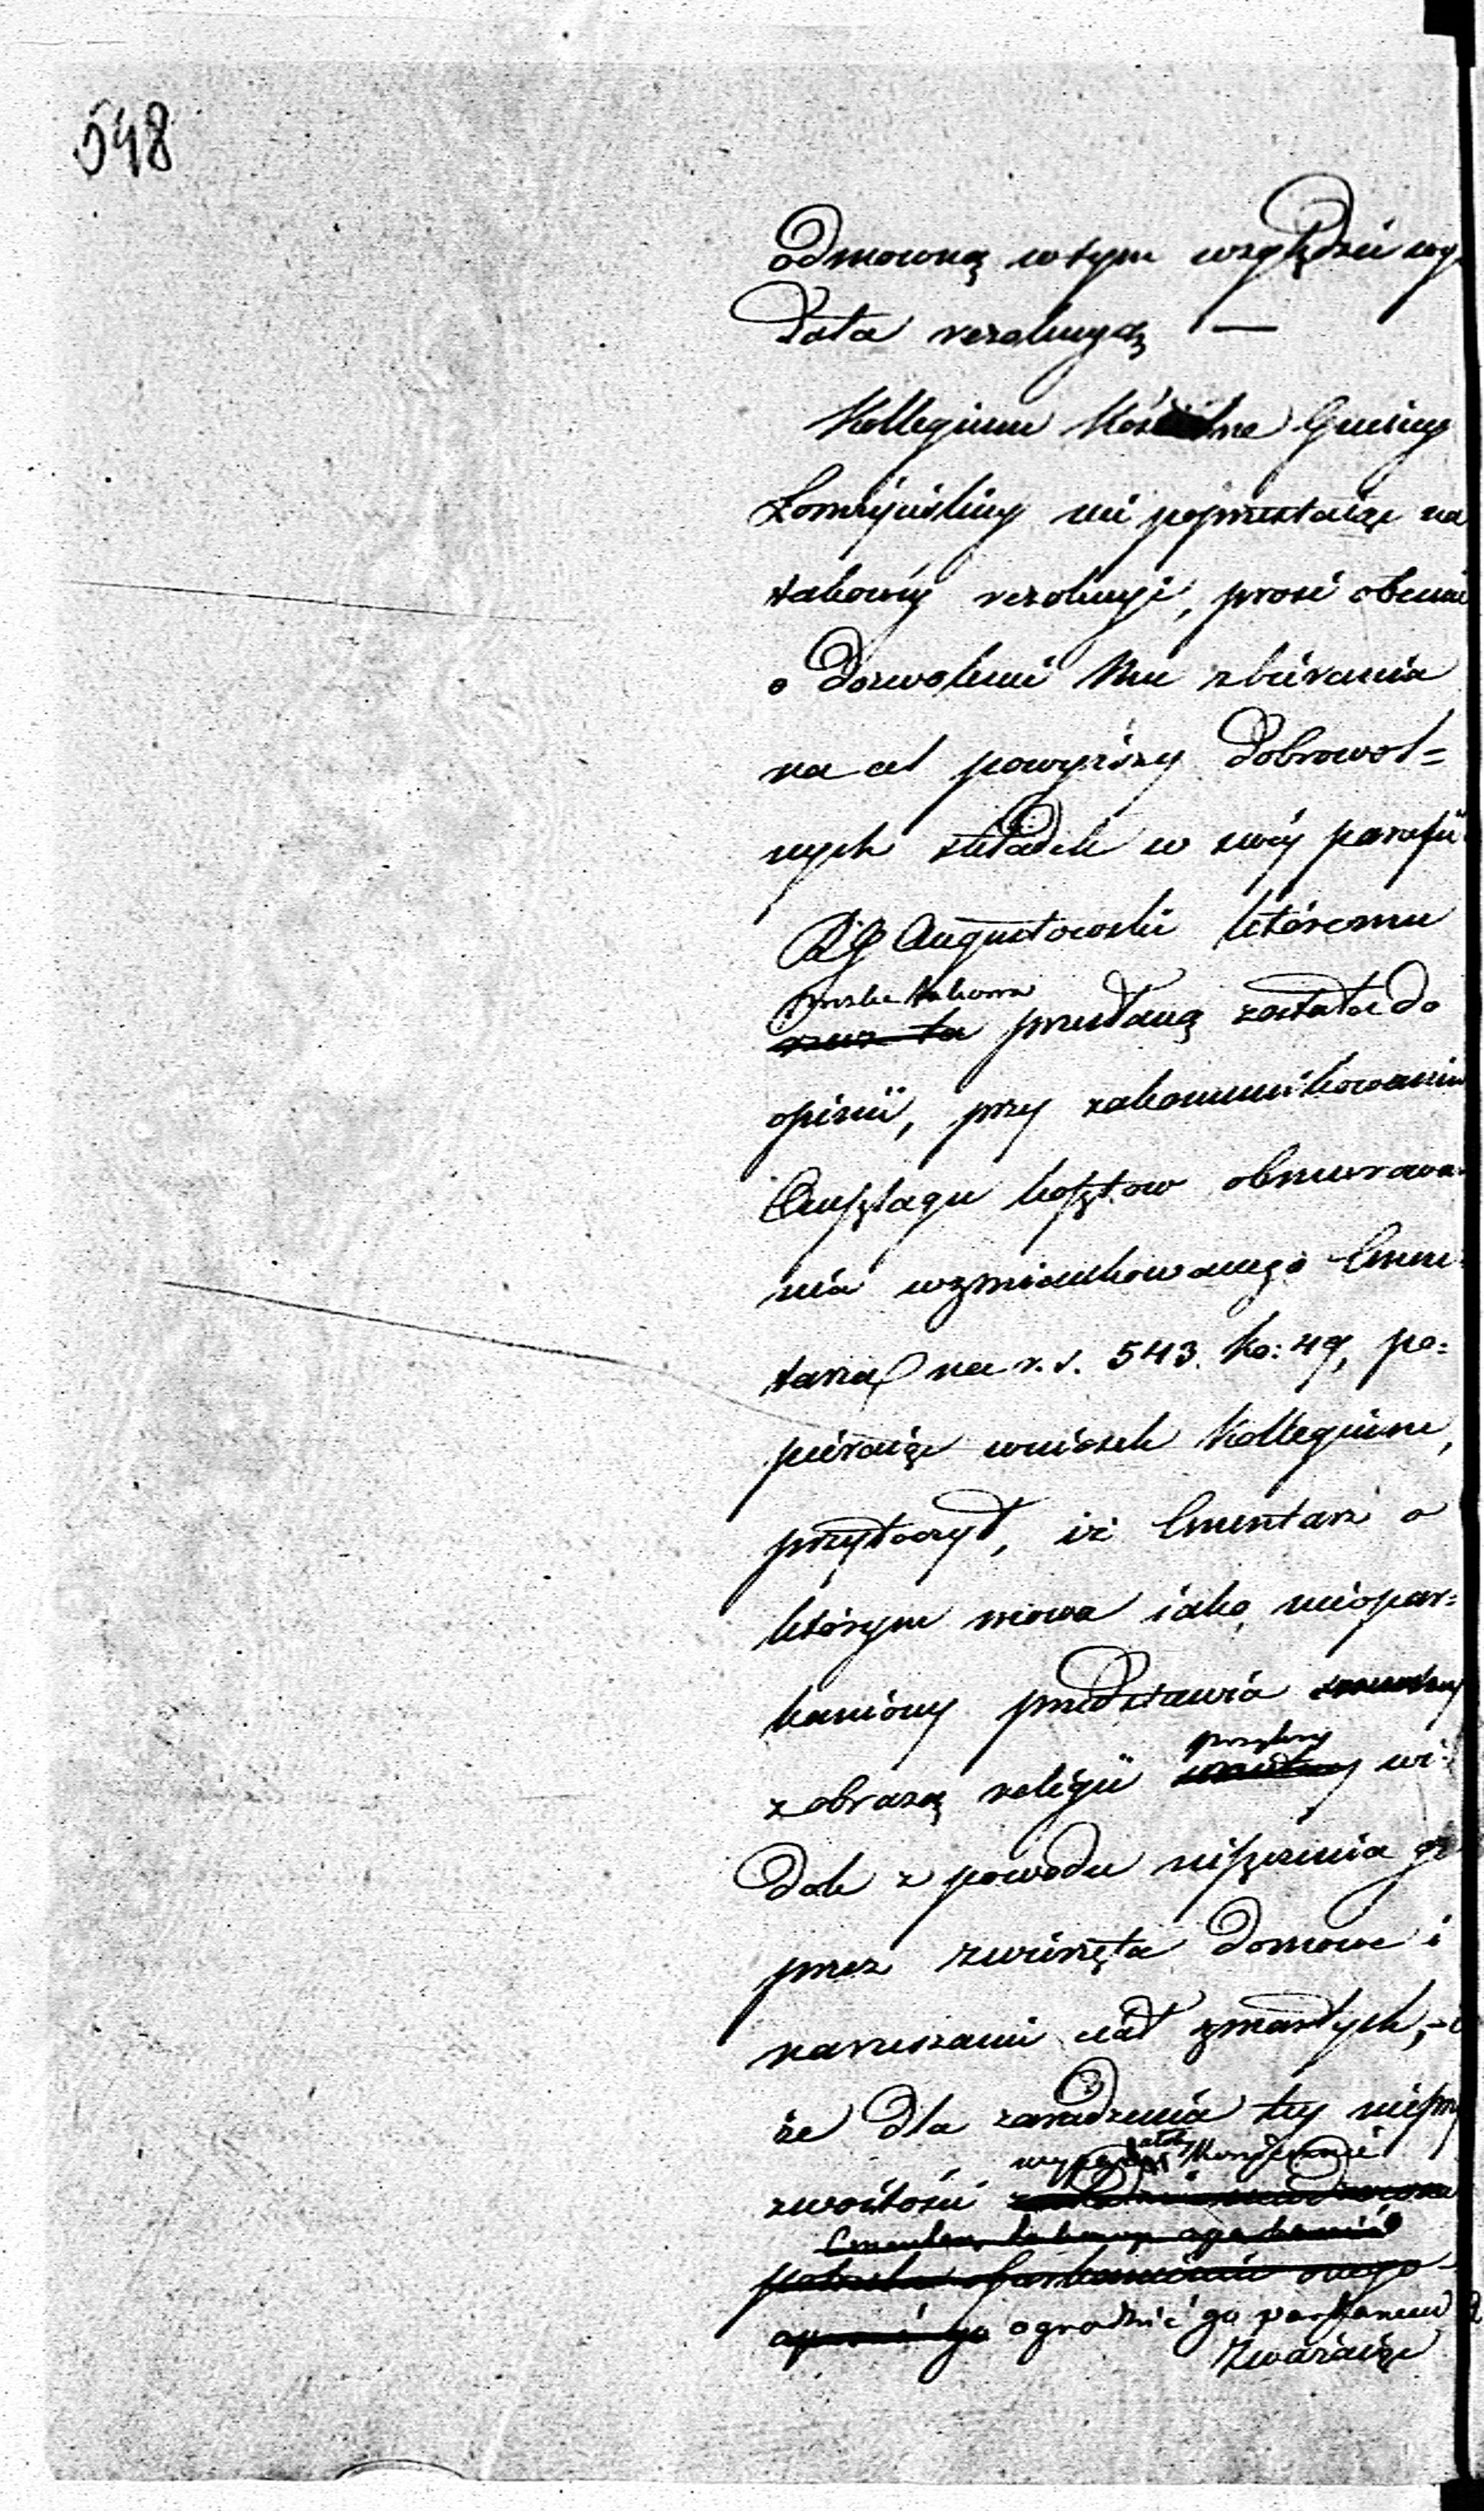 548
odmowną w tym względzie wy-
dała rezolucyą —
Kollegium Kościelne Gminy
Łomżyńskiey nie poprzestaiąc na
takowey rezolucyi, prosi obecnie
o dozwolenie Mu zbierania
na cel powyższy dobrowol=
nych składek w swey parafii
RG Augustowski któremu
prośba takowa
przesłaną została do
opinii, przy zakommunikowaniu
Anszlagu kosztow obmurowa-
nia wzmiankowanego Cmen-
tarza na r. s. 543. ko: 49, po=
pieraiąc wniosek Kollegium,
przytoczył, iż Cmentarz o
którym mowa iako nieopar=
kaniony przedstawia
przykry
z obrazą religii wi-
dok z powodu niszczenia go
przez zwierzęta domowe i
naruszanie ciał zmarłych, - i
że dla zaradzenia tey nieprzy
zwoitości
ogrodzić go parkanem
Zważaiąc